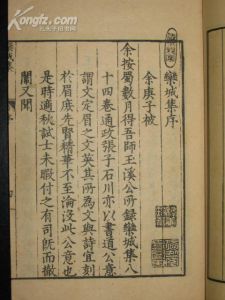 欒城集序
余庚子被
余按蜀數月得吾師王溪公所錄欒城集八
十四卷通政張子石川亦以書道公意
謂文定眉之文英其所為文與詩宜刻
於眉庶先賢精華不至淪沒此公意也
是時適秋試士未暇付之有司既而撤
闈又聞